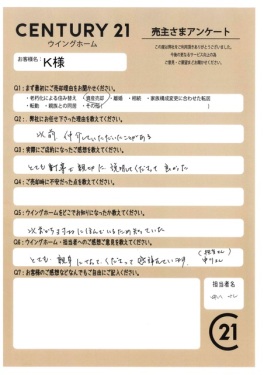 CENTURY 21
ウイングホーム
売主さまアンケート
この度は弊社をご利用頂きありがとうございました。
今後の更なるサービス向上の為
ご意見・ご要望をお聞かせください。
お客様名： K様
Q1：まず最初にご売却理由をお聞かせください。
・老朽化による住み替え ・資産売却 ・離婚 ・相続 ・家族構成変更に合わせた転居
・転勤 ・親族との同居 ・その他（
Q2：弊社にお任せ下さった理由を教えてください。
以前 仲介していただいたことがある
Q3：実際にご成約になったご感想を教えてください。
とても 親切に 説明してくださって 良かった
Q4：ご売却時に不安だった点を教えてください。
Q5：ウイングホームをどこでお知りになったか教えてください。
知っていた
Q6：ウイングホーム・担当者へのご感想ご意見を教えてください。
とても 親身に なって くださって 感謝しています。
Q7：お客様のご感想などなんでもご自由にご記入ください。
担当者名
C21